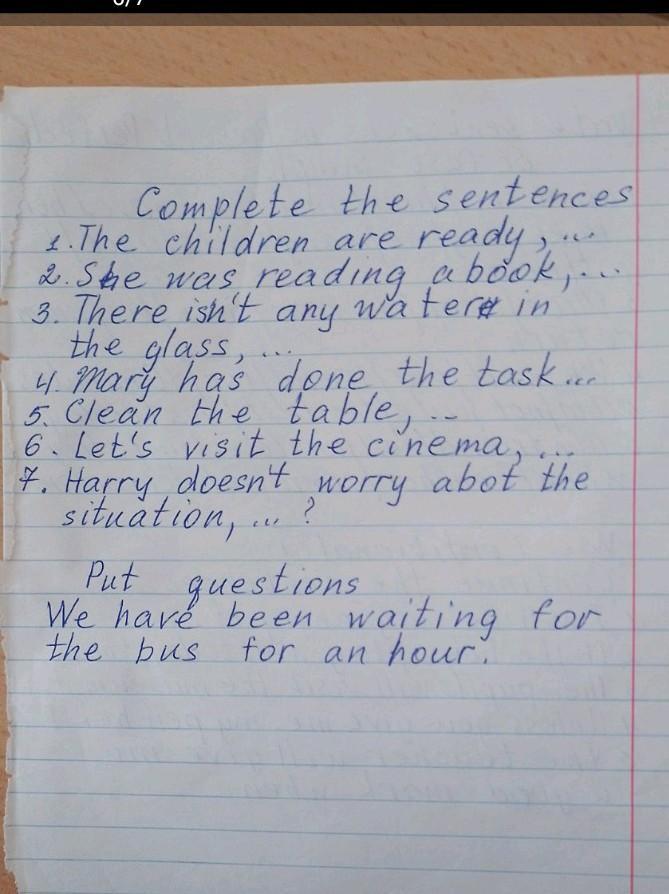 Complete the sentences
1. The children are ready, ...
2. She was reading a book, ...
3. There isn't any water in
the glass, ...
4. Mary has done the task...
5. Clean the table, ..
6. Let's visit the cinema, ...
7. Harry doesn't worry abot the
situation, ... ?
Put questions
We have been waiting for
the bus for an hour.